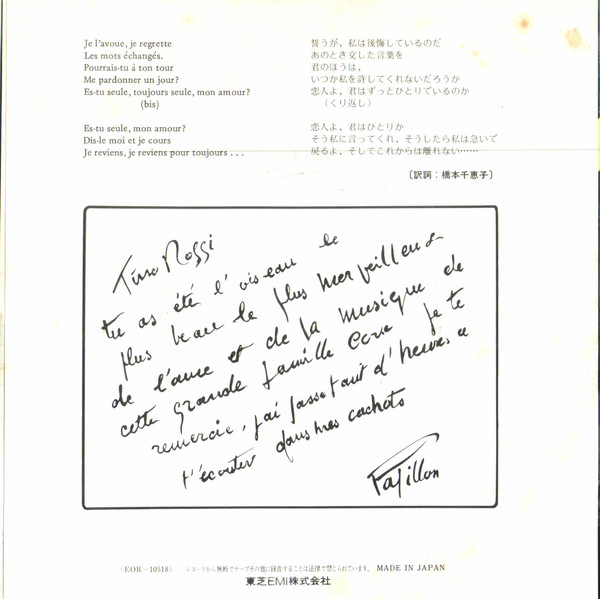 Je l'avoue, je regrette
Les mots échangés.
Pourrais-tu à ton tour
Me pardonner un jour?
Es-tu seule, toujours seule, mon amour?
(bis)
Es-tu seule, mon amour?
Dis-le moi et je cours
Je reviens, je reviens pour toujours . . .
誓うが，私は後悔しているのだ
あのとき交した言葉を
君のほうは，
いつか私を許してくれないだろうか
恋人よ，君はずっとひとりでいるのか
（くり返し）
恋人よ，君はひとりか
そう私に言ってくれ，そうしたら私は急いで
戻るよ，そしてこれからは離れない……
〔訳詞：橋本千恵子〕
Tino Rossi
tu as été l'oiseau le
plus beau le plus merveilleux
de l'ame et de la musique de
cette grande famille je te
remercie, j'ai passé tant d'heures a
t'écouter dans mes cachots
Papillon
(EOR－10518) レコードから無断でテープその他に録音することは法律で禁じられています。 MADE IN JAPAN
東芝EMI株式会社